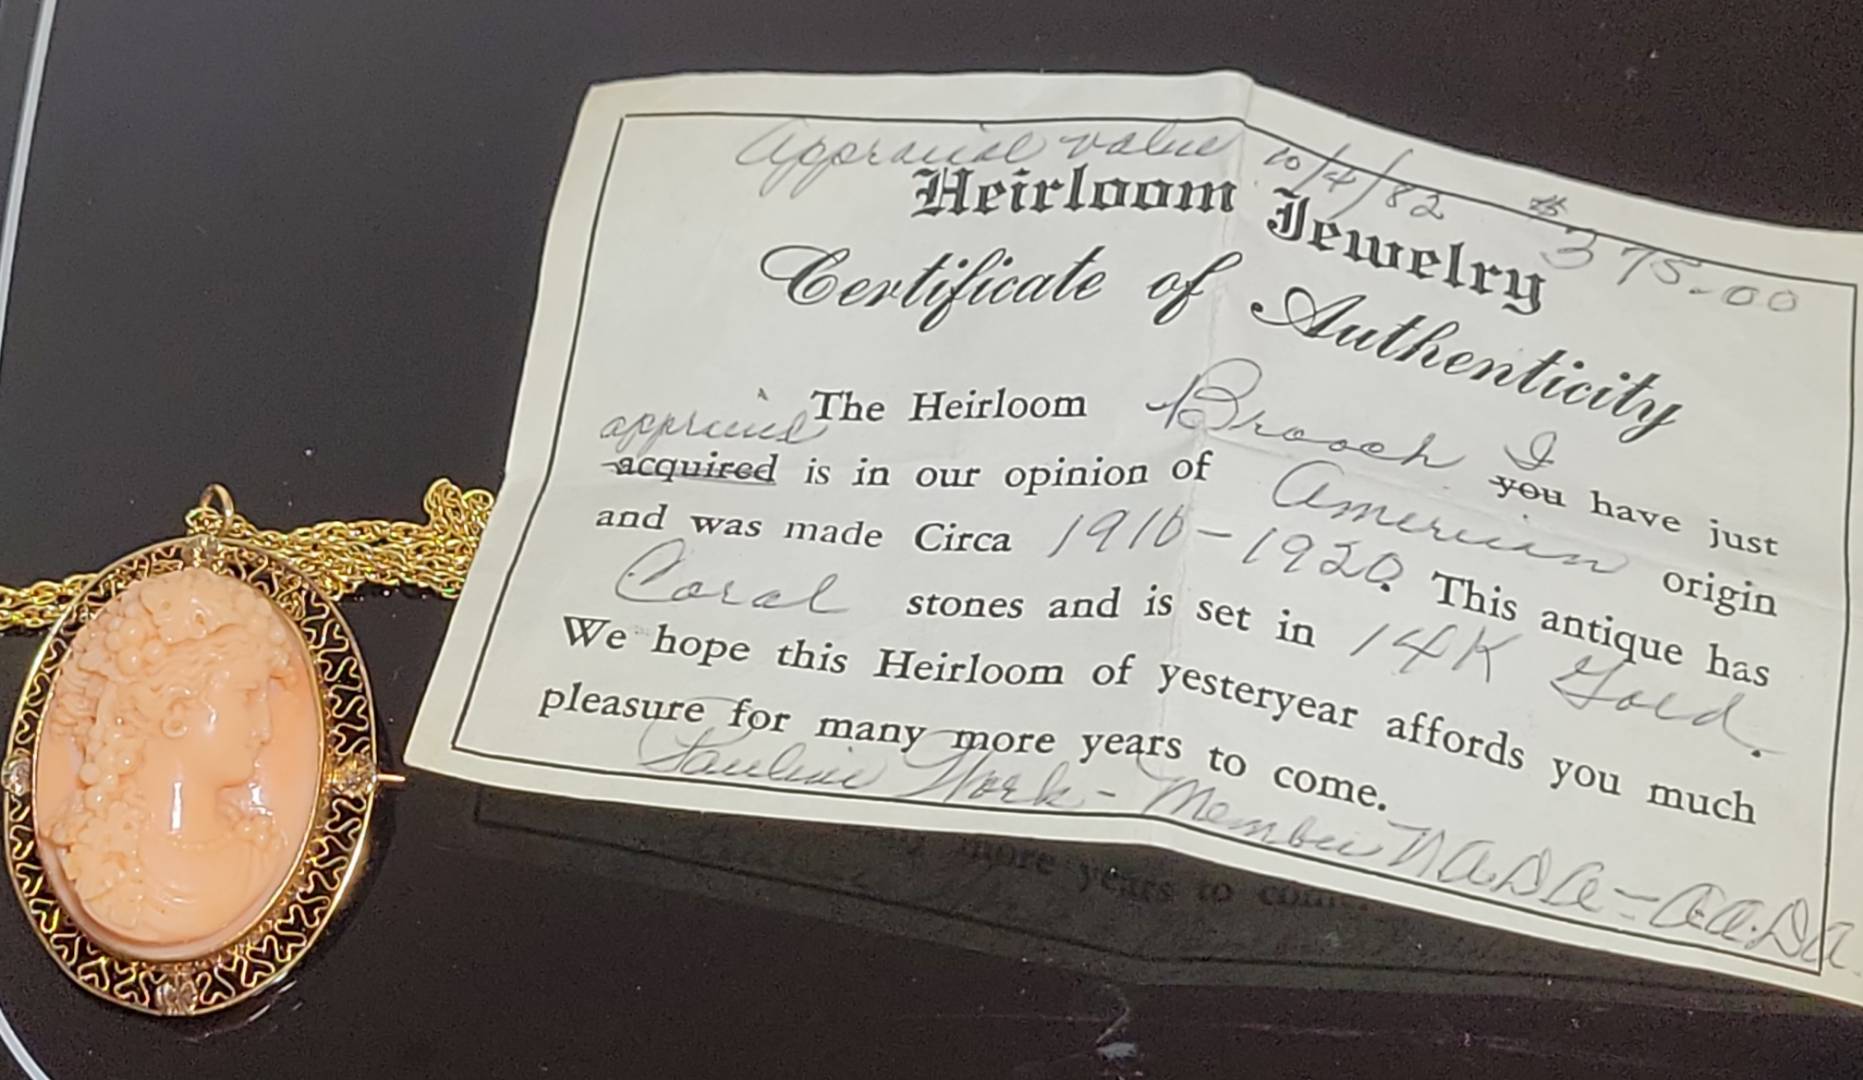 Appraisal value 10/4/82 $375.00
Heirloom Jewelry
Certificate of Authenticity
The Heirloom Brooch I you have just
appraised
acquired is in our opinion of American origin
and was made Circa 1910-1920. This antique has
Coral stones and is set in 14K Gold.
We hope this Heirloom of yesteryear affords you much
pleasure for many more years to come.
Pauline Work - Member NADA - AADA
more years to